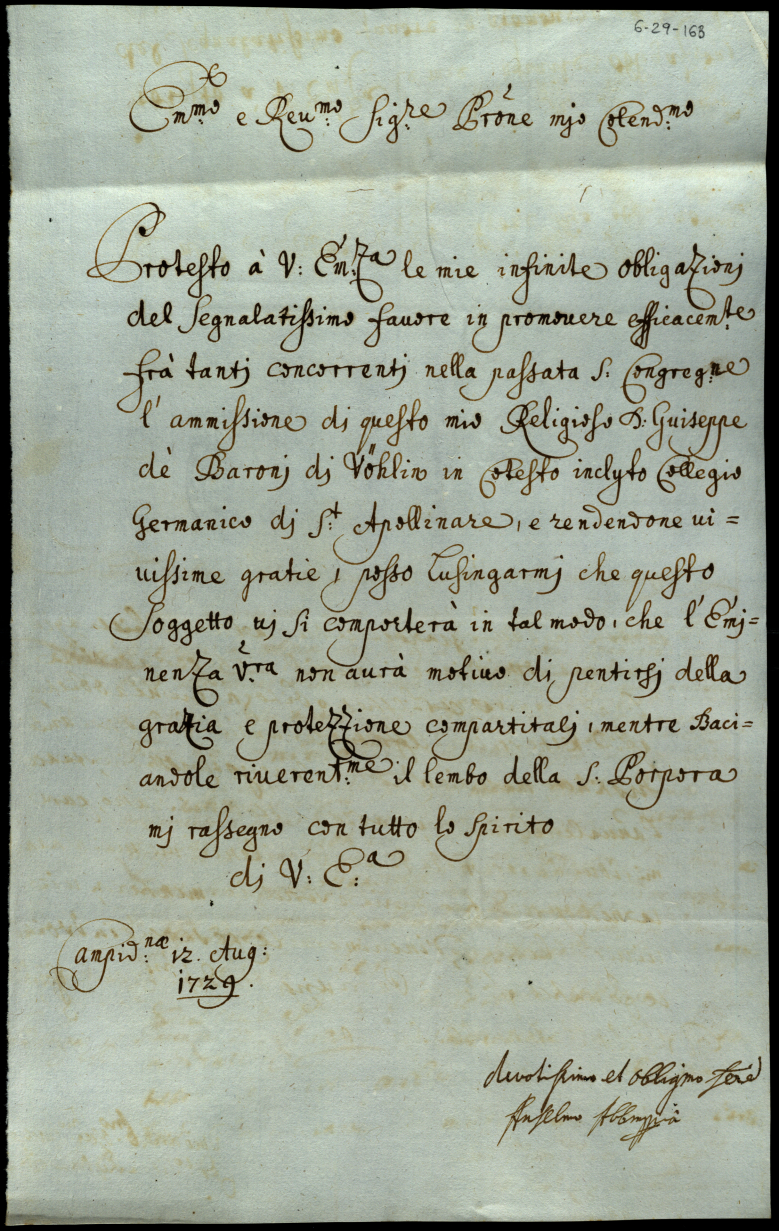 6-29-163
Em.mo e Reu.mo Sig.re Prōne mjo Colend.mo
Protesto à V: Em.za le mie infinite obligazionj
del Segnalatissimo fauore in promouere efficacem.te
frà tantj concorrentj nella passata S: Congreg.ne
l'ammissione dj questo mio Religioso D. Guiseppe
dè Baronj dj Vöhlin in Cotesto inclyto Collegio
Germanico dj S.t Apollinare, e rendendone ui=
uissime gratie, posso Lusingarmj che questo
Soggetto uj si comporterà in tal modo, che l'Emj=
nenza V.ra non aurà motiuo dj pentirsj della
grazia e protezzione compartitalj, mentre Baci=
andole riuerent.me il lembo della S: Porpora
mj rassegno con tutto lo Spirito
dj V: E.a
Campid.næ 12. Aug:
1729.
devotissimo et obligmo
Anselmo